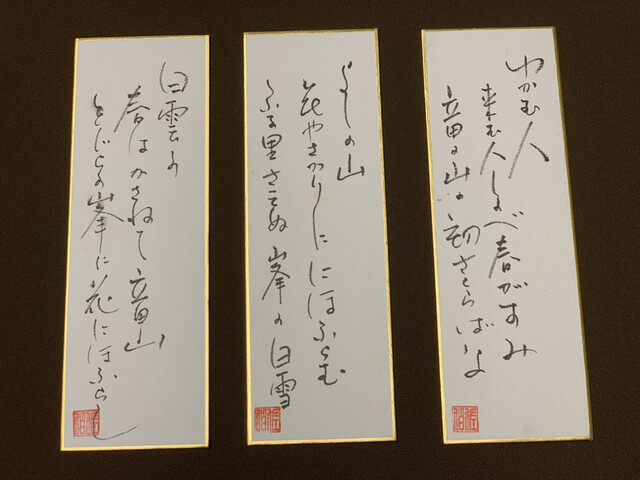 ゆかむ人
来む人しのべ春がすみ
立田の山の初さくらばな
よしの山
花やさかりににほふらむ
ふる里さえぬ峯の白雪
白雲の
春はかさねて立田山
をぐらの峯に花にほふらし